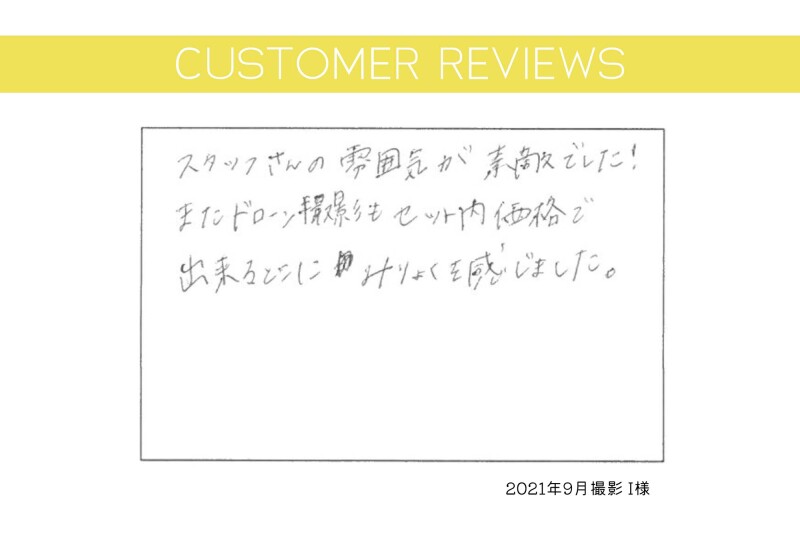 CUSTOMER REVIEWS
スタッフさんの雰囲気が素敵でした！
またドローン撮影も セット内価格で
出来るところに みりょくを感じました。
2021年9月撮影 I様